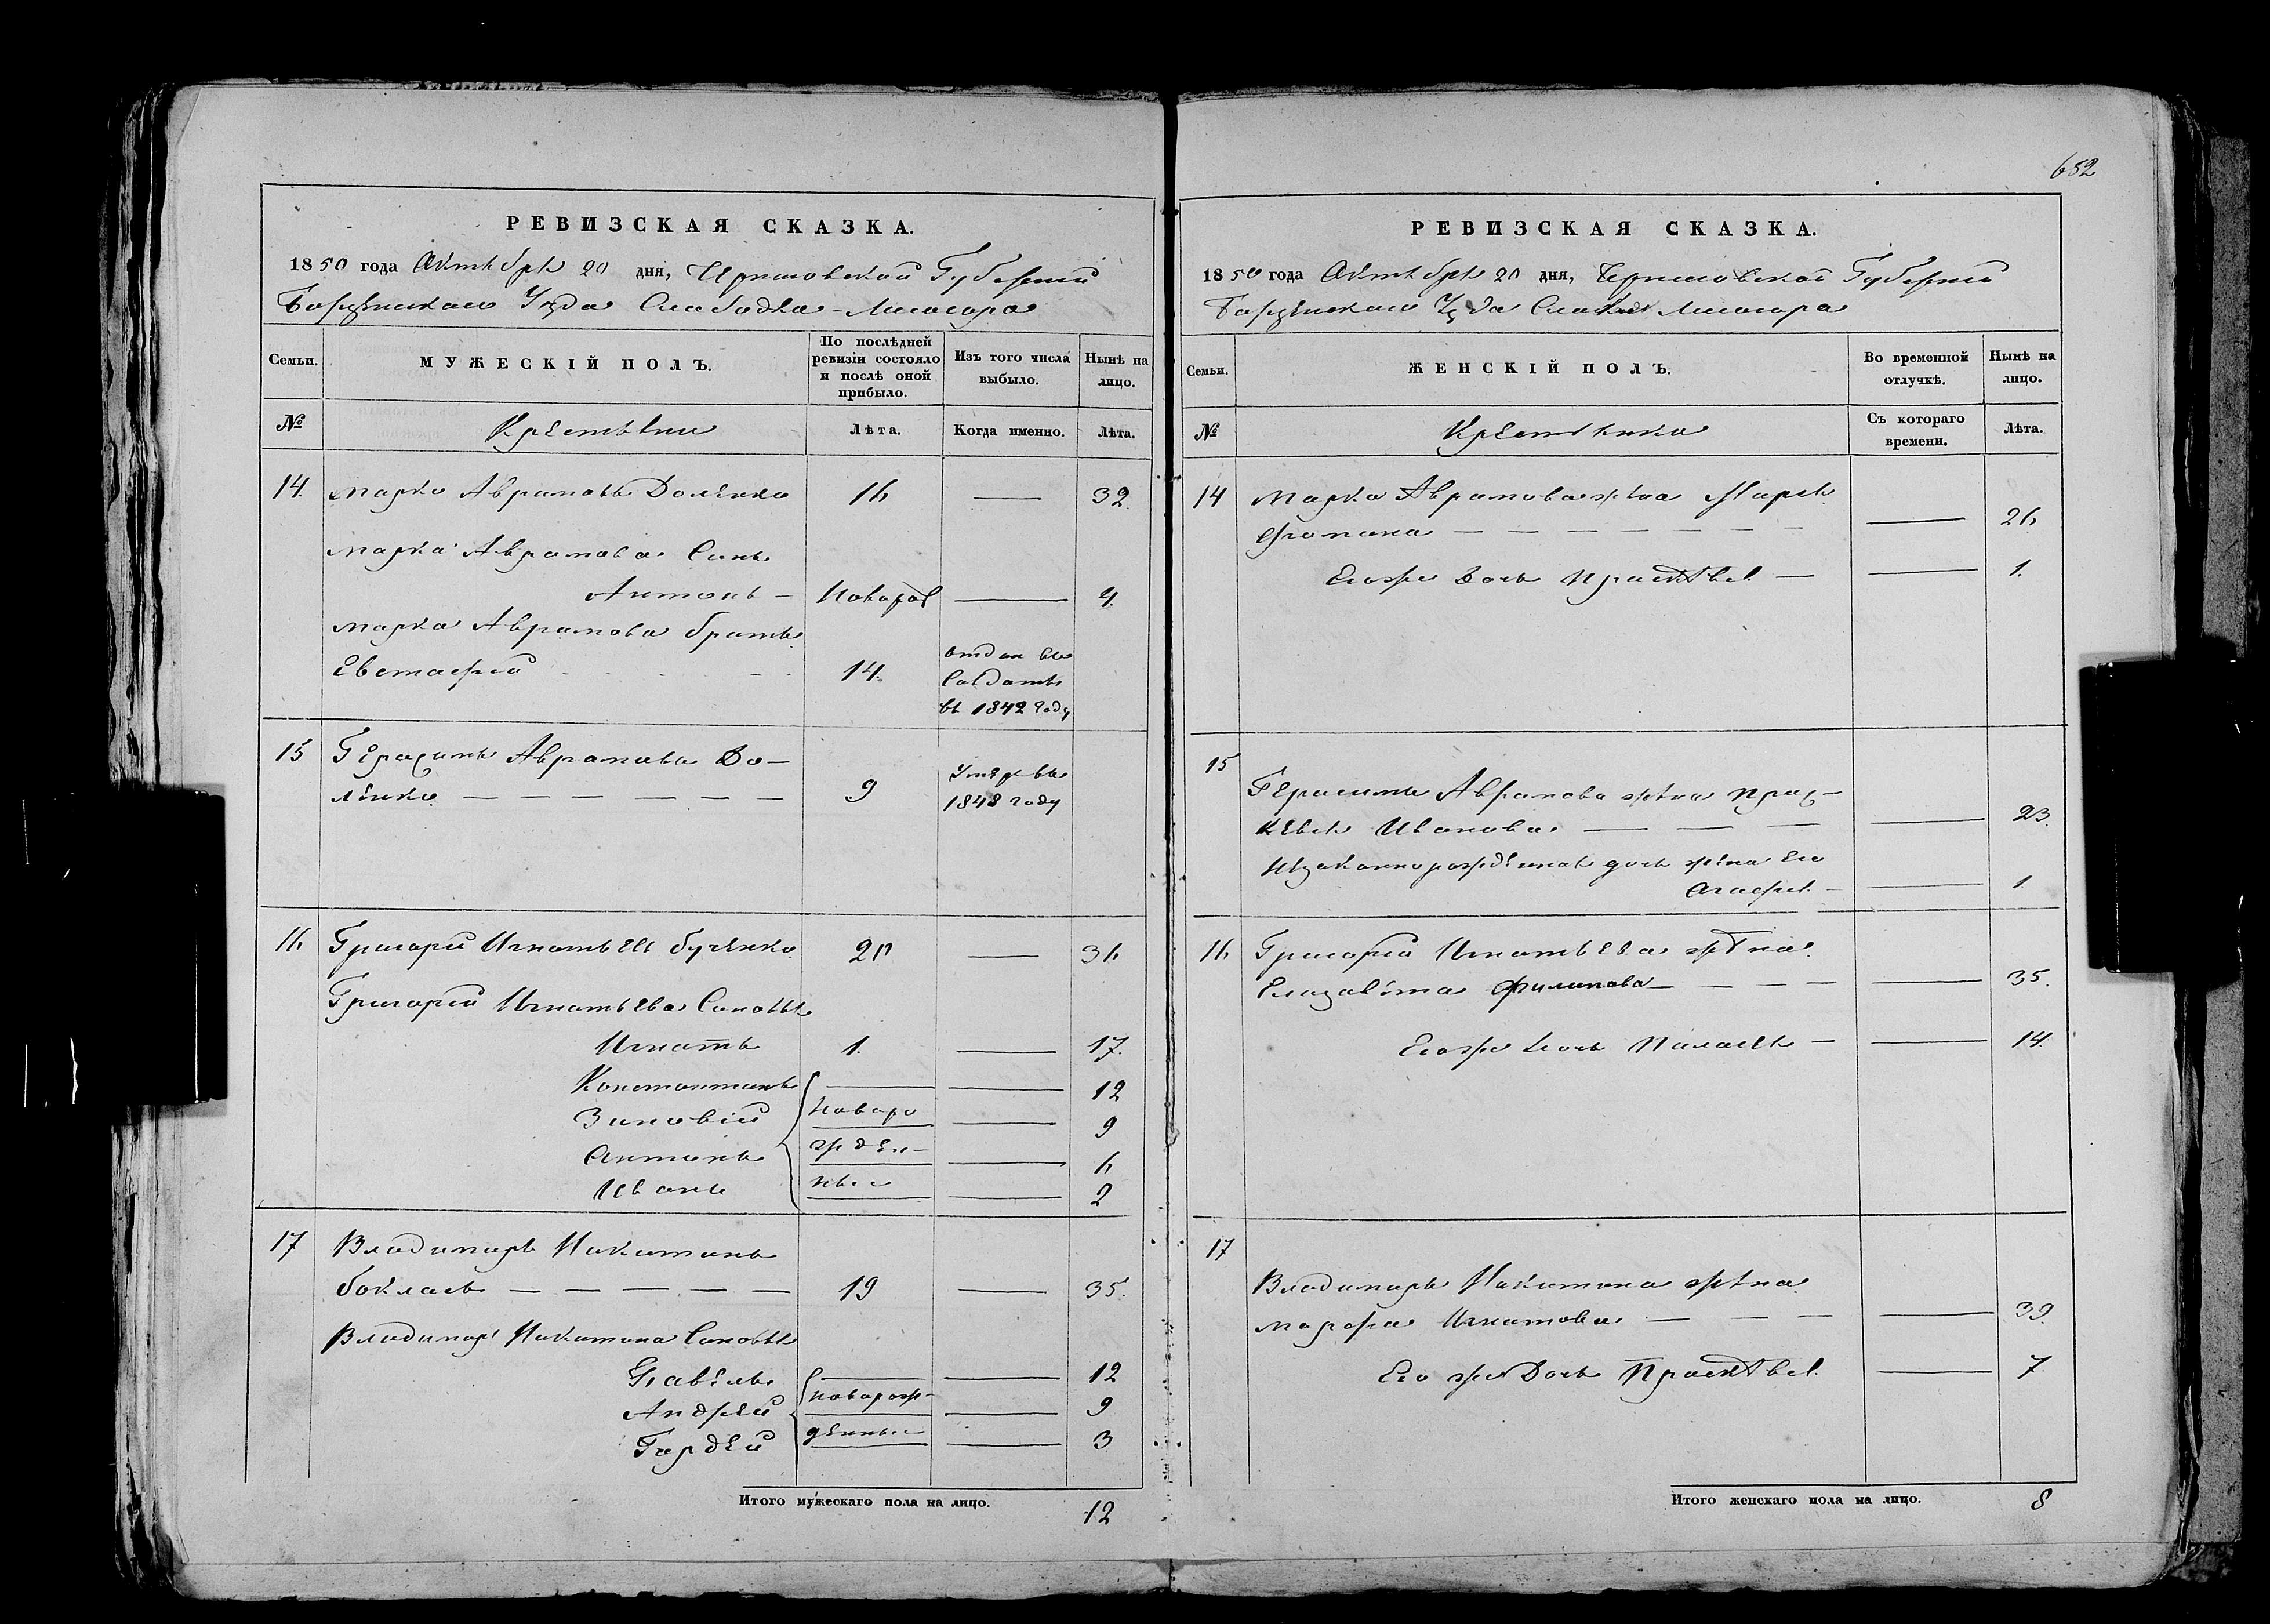 652
РЕВИЗСКАЯ СКАЗКА.
1850 года Октября 20 дня, Черниговской Губернии
Борзенскаго Уезда Слободка-Лисогора
Семьи.
МУЖЕСКІЙ ПОЛЪ.
По послѣдней ревизіи состояло и послѣ оной прибыло.
Изъ того числа выбыло.
Нынѣ на лицо.
№
Крестьяни
Лѣта.
Когда именно.
Лѣта.
14. Марко Аврамовъ Доленко 16 — 32.
Марка Аврамова Синъ
Антонъ — Новорож — 4.
Марка Аврамова братъ
Евстафий 14. отдан въ Салдаты въ 1842 году
15 Герасимъ Аврамовъ До-
ленко — — — — — — 9 Умеръ въ 1848 году
16 Григорий Игнатьевъ Бученко 20 — 36
Григория Игнатьева Синовья
Игнатъ 1. — 17.
Константинъ — — 12
Зиновій новоро — 9
Антонъ жден- — 6
Иванъ ные — 2
17 Владимиръ Никитинъ
боклагъ — — — — — 19 — 35.
Владимира Никитина Синовья
Павелъ — — 12
Андрей новорож- — 9
Гордей денные — 3
Итого мужескаго пола на лицо. 12
РЕВИЗСКАЯ СКАЗКА.
1850 года Октября 20 дня, Черниговской Губернии
Борзенскаго Уезда Лисогора
Семьи.
ЖЕНСКІЙ ПОЛЪ.
Во временной отлучкѣ.
Нынѣ на лицо.
№
Крестьянка
Съ котораго времени.
Лѣта.
14 Марка Аврамова жена Марья
Фомина — — — — — — — — 26
Егоже дочь Прасковья — — 1.
15
Герасима Аврамова жена Прас-
кевья Иванова — — — — 23.
Незаконнорожденная дочь жена его
Агафья — — 1.
16 Григория Игнатьева жена
Елизавета Филипова — — — — — 35.
Егоже дочь Палагея — — 14.
17
Владимира Никитина жена
Марфа Игнатова — — — — 39.
Его же Дочь Прасковья — 7
Итого женскаго пола на лицо. 8